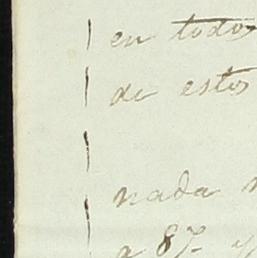 en todos
de estos
nada
a 87